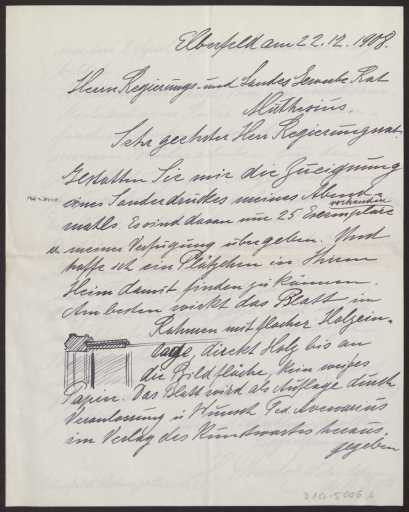 Elberfeld am 22.12.1908.
Herrn Regierungs- und Landes Gewerbe Rat
Muthesius.
Sehr geehrter Herr Regierungsrat.
Gestatten Sie mir die Zueignung
eines Sonderdruckes meines Abend-
mahls. Es sind davon nur 25 Exemplare
vorhanden
meiner Verfügung übergeben. Und
hoffe ich ein Plätzchen in Ihrem
Heim damit finden zu können.
Am besten wirkt das Blatt im
Rahmen mit flacher Holzein-
lage, direkt Holz bis an
die Bildfläche, kein weißes
Papier. Das Blatt wird als Auflage durch
Veranlassung u Wunsch Fed. Avenarius
im Verlag des Kunstwartes heraus-
gegeben